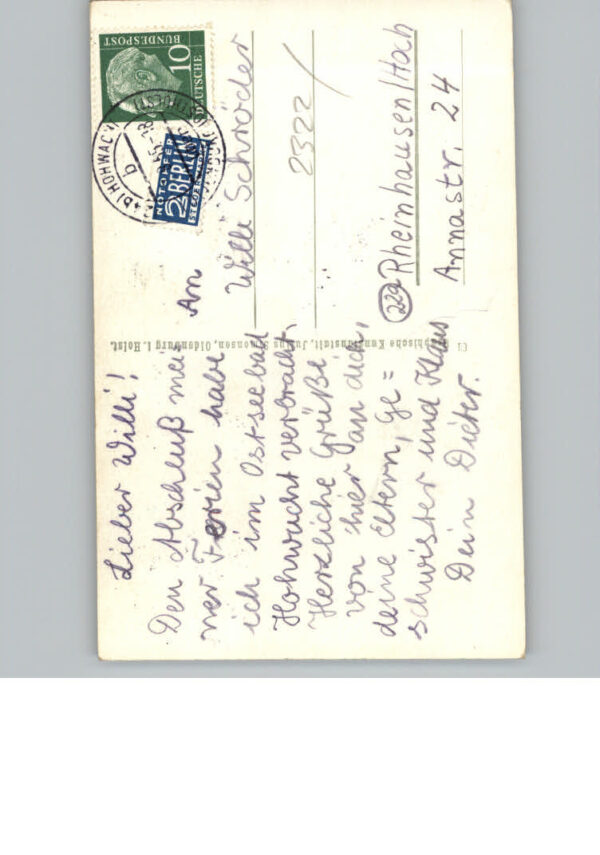 Lieber Willi!
Den Abschluß mei
ner Ferien habe
ich im Ostseebad
Hohwacht verbracht.
Herzliche Grüße
von hier an dich,
deine Eltern, Ge=
schwister und Klaus
Dein Dieter.
Kunstanstalt, Julius Simonsen, Oldenburg i. Holst.
DEUTSCHE
BUNDESPOST
10
HOHWACHT
b
NOTOPFER
2 BERLIN
STEUERMARKE
An
Willi Schröder
2322/
(22a) Rheinhausen/Hoch
Annastr. 24